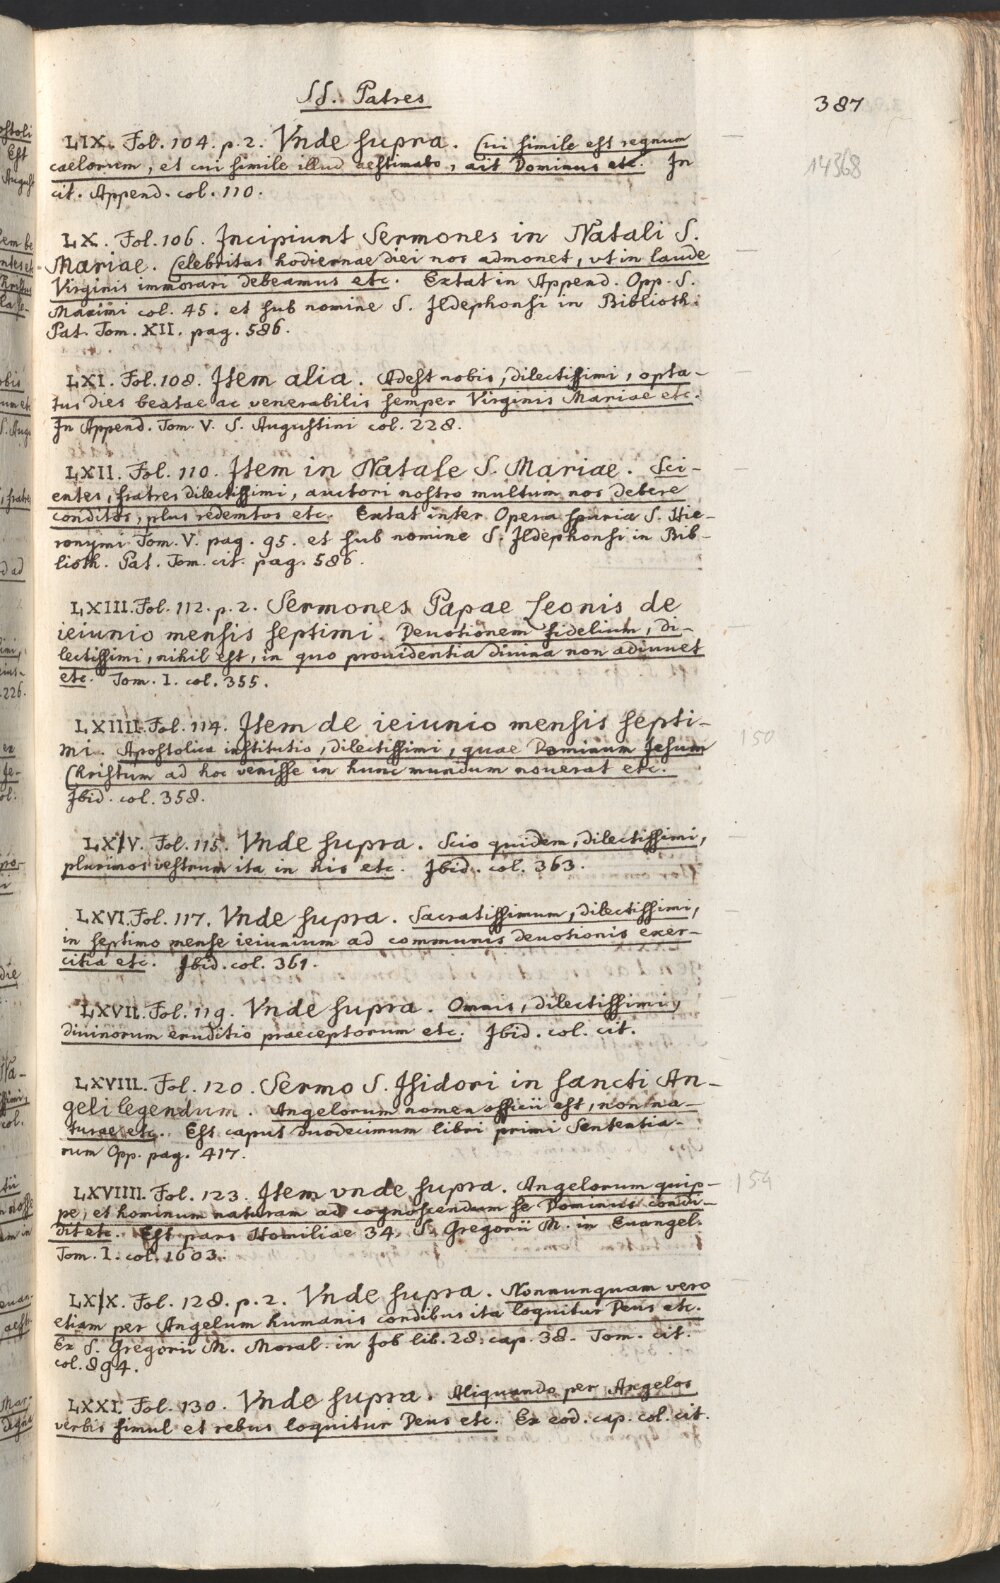 SS. Patres
387
LIX. Fol. 104. p. 2. Vnde supra. Cui simile est regnum
14368
caelorum, et cui simile illud aestimabo, ait Dominus etc. In
cit. Append. col. 110.
LX. Fol. 106. Incipiunt Sermones in Natali S.
Mariae. Celebritas hodiernae diei nos admonet, vt in laude
Virginis immorari debeamus etc. Extat in Append. Opp. S.
Maximi col. 45. et sub nomine S. Ildephonsi in Biblioth.
Pat. Tom. XII. pag. 586.
LXI. Fol. 108. Item alia. Adest nobis, dilectissimi, opta-
tus dies beatae ac venerabilis semper Virginis Mariae etc.
In Append. Tom. V. S. Augustini col. 228.
LXII. Fol. 110. Item in Natale S. Mariae. Sci-
entes, fratres dilectissimi, auctori nostro multum nos debere
conditos, plus redemtos etc. Extat inter Opera spuria S. Hie-
ronymi Tom. V. pag. 95. et sub nomine S. Ildephonsi in Bib-
lioth. Pat. Tom. cit. pag. 586.
LXIII. Fol. 112. p. 2. Sermones Papae Leonis de
ieiunio mensis septimi. Deuotionem fidelium, di-
lectissimi, nihil est, in quo prouidentia diuina non adiuuet
etc. Tom. I. col. 355.
LXIIII. Fol. 114. Item de ieiunio mensis septi-
mi. Apostolica institutio, dilectissimi, quae Dominum Jesum
150
Christum ad hoc venisse in hunc mundum nouerat etc.
Ibid. col. 358.
LXV. Fol. 115. Vnde supra. Scio quidem, dilectissimi,
plurimos vestrum ita in his etc. Ibid. col. 363.
LXVI. Fol. 117. Vnde supra. Sacratissimum, dilectissimi,
in septimo mense ieiunium ad communis deuotionis exer-
citia etc. Ibid. col. 361.
LXVII. Fol. 119. Vnde supra. Omnis, dilectissimi,
diuinorum eruditio praeceptorum etc. Ibid. col. cit.
LXVIII. Fol. 120. Sermo S. Isidori in sancti An-
geli legendum. Angelorum nomen officii est, non na-
turae etc. Est caput duodecimum libri primi Sententia-
rum Opp. pag. 417.
LXVIIII. Fol. 123. Item vnde supra. Angelorum quip-
154
pe, et hominum naturam ad cognoscendum se Dominus condi-
dit etc. Est pars Homiliae 34. S. Gregorii M. in Euangel.
Tom. I. col. 1603.
LXX. Fol. 128. p. 2. Vnde supra. Nonnunquam vero
etiam per Angelum humanis cordibus ita loquitur Deus etc.
Ex S. Gregorii M. Moral. in Job lib. 28. cap. 38. Tom. cit.
col. 894.
LXXI. Fol. 130. Vnde supra. Aliquando per Angelos
verbis simul et rebus loquitur Deus etc. Ex eod. cap. col. cit.